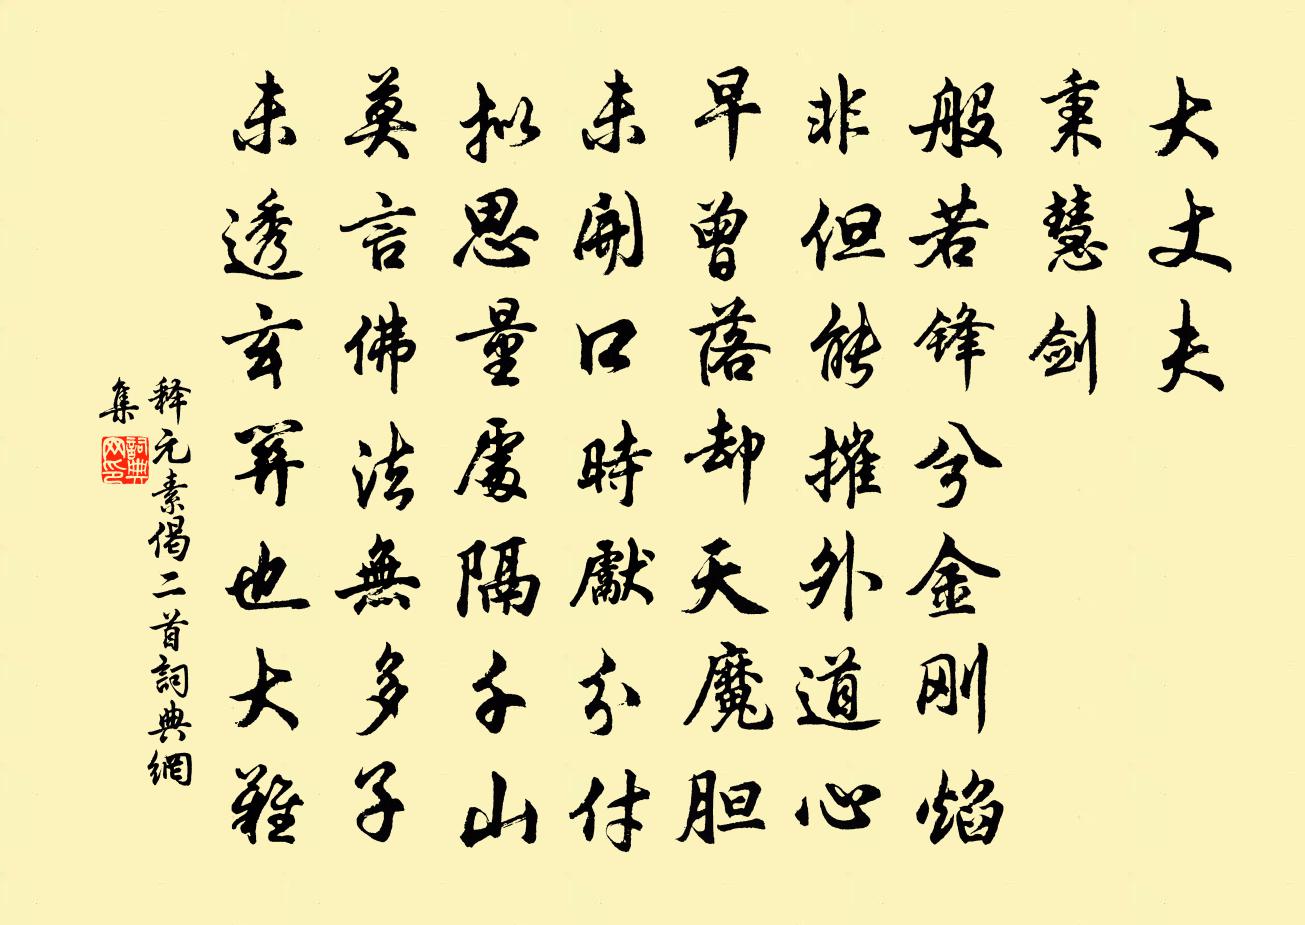 大丈夫
秉慧剑
般若锋兮金刚焰
非但能摧外道心
早曾落却天魔胆
未開口時獻分付
拟思量處隔千山
莫言佛法無多子
未透玄關也大難
释元素偈二首詞典網
集
詞典网印